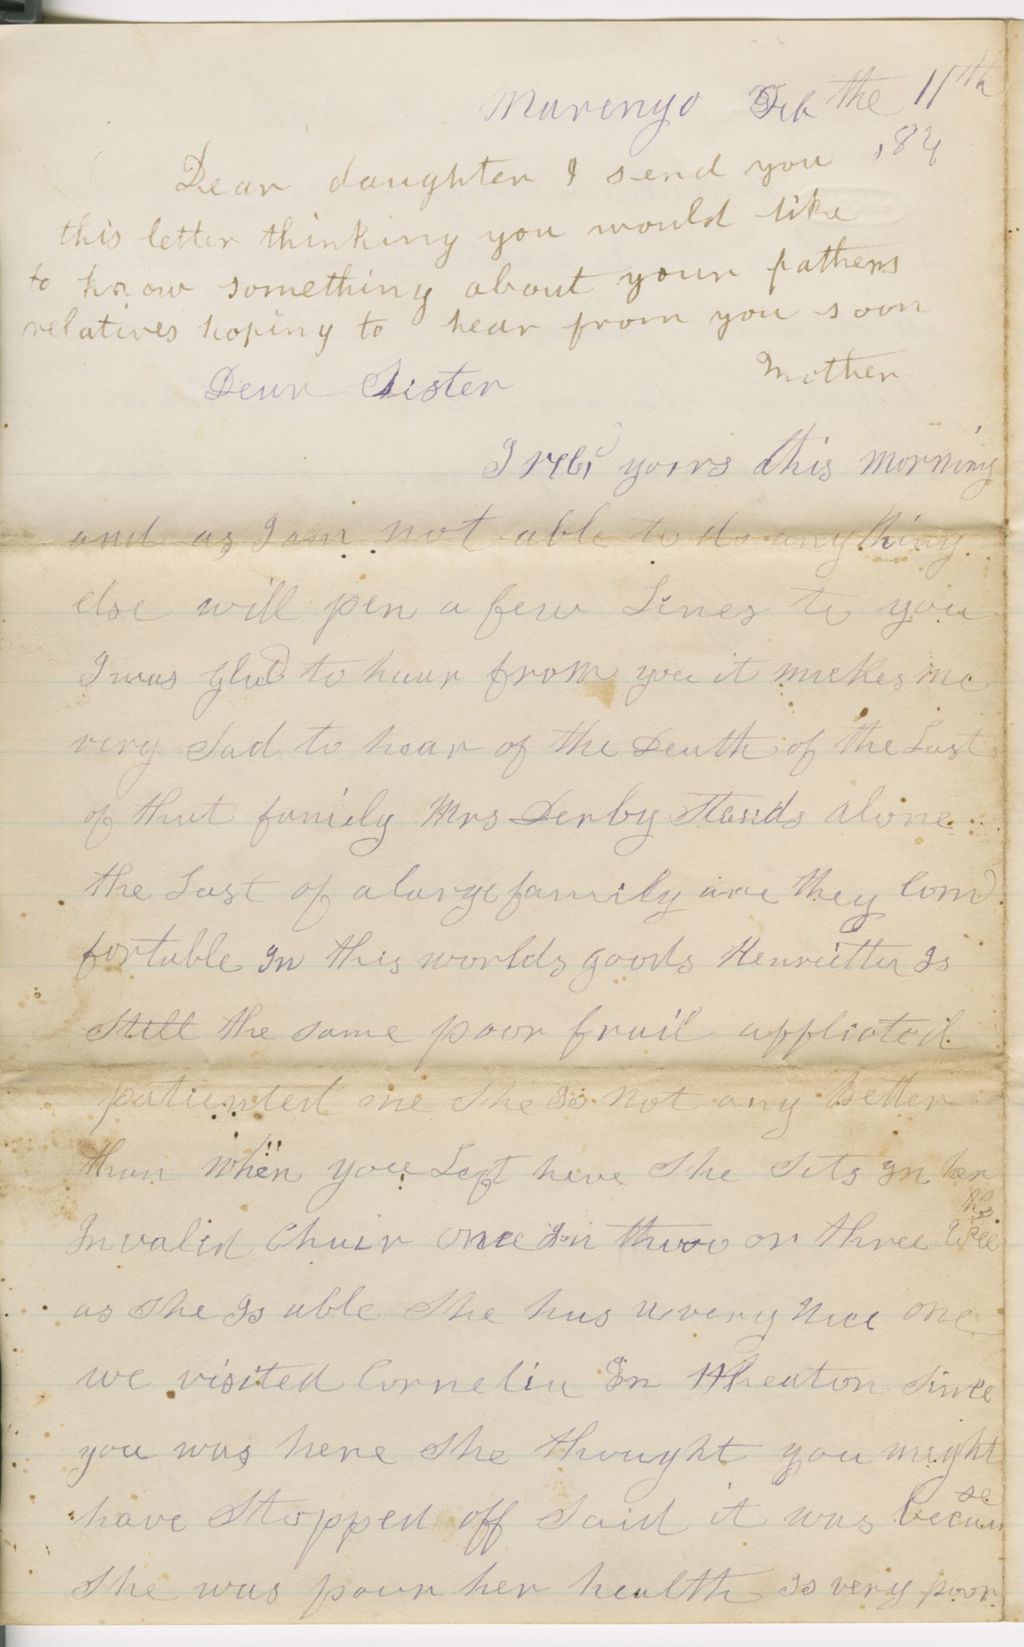 Marengo Feb the 11th
,84
Dear daughter I send you
this letter thinking you would like
to know something about your fathers
relatives hoping to hear from you soon
Mother
Dear Sister
I recd yours this morning
and as I am not able to do anything
else will pen a few Lines to you
I was glad to hear from you it makes me
very Sad to hear of the Death of the Last
of that family Mrs Derby Stands alone
the Last of a large family are they Com
fortable In this worlds goods Henrietta Is
Still the same poor frail afflicted
patiented one She Is not any better
than when you Left here She Sits In her
Invalid Chair once In twoo or three weeks
as She Is able She has a very Nice one
we visited Cornelia In Wheaton Since
you was here She thought you might
have Stopped off Said it was because
She was poor her health Is very poor